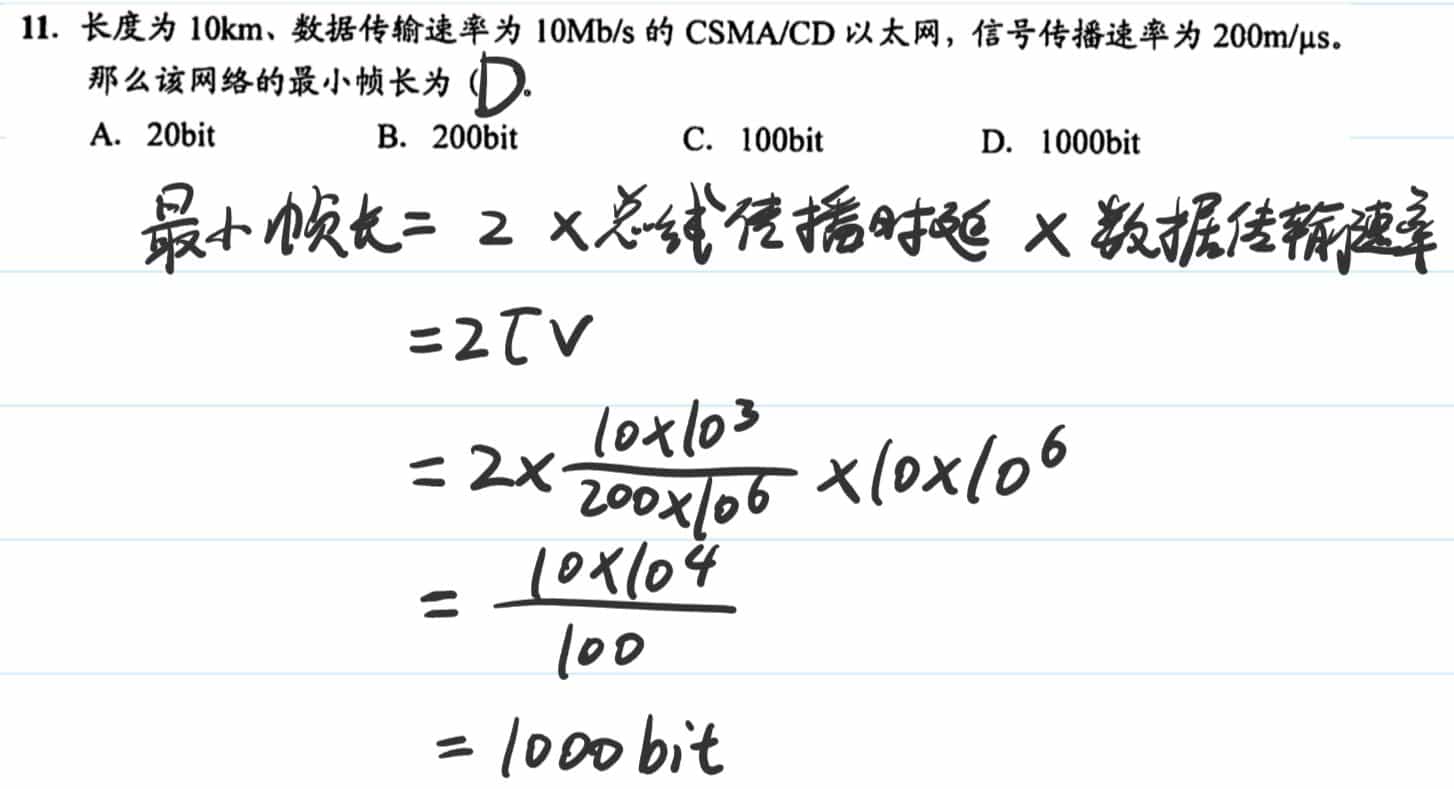 11. 长度为 10km、数据传输速率为 10Mb/s 的 CSMA/CD 以太网，信号传播速率为 200m/μs。
那么该网络的最小帧长为（D。
A. 20bit B. 200bit C. 100bit D. 1000bit
最小帧长 = 2 × 总线传播时延 × 数据传输速率
= 2τV
= 2× 10×10³ / 200×10⁶ ×10×10⁶
= 10×10⁴ / 100
= 1000 bit